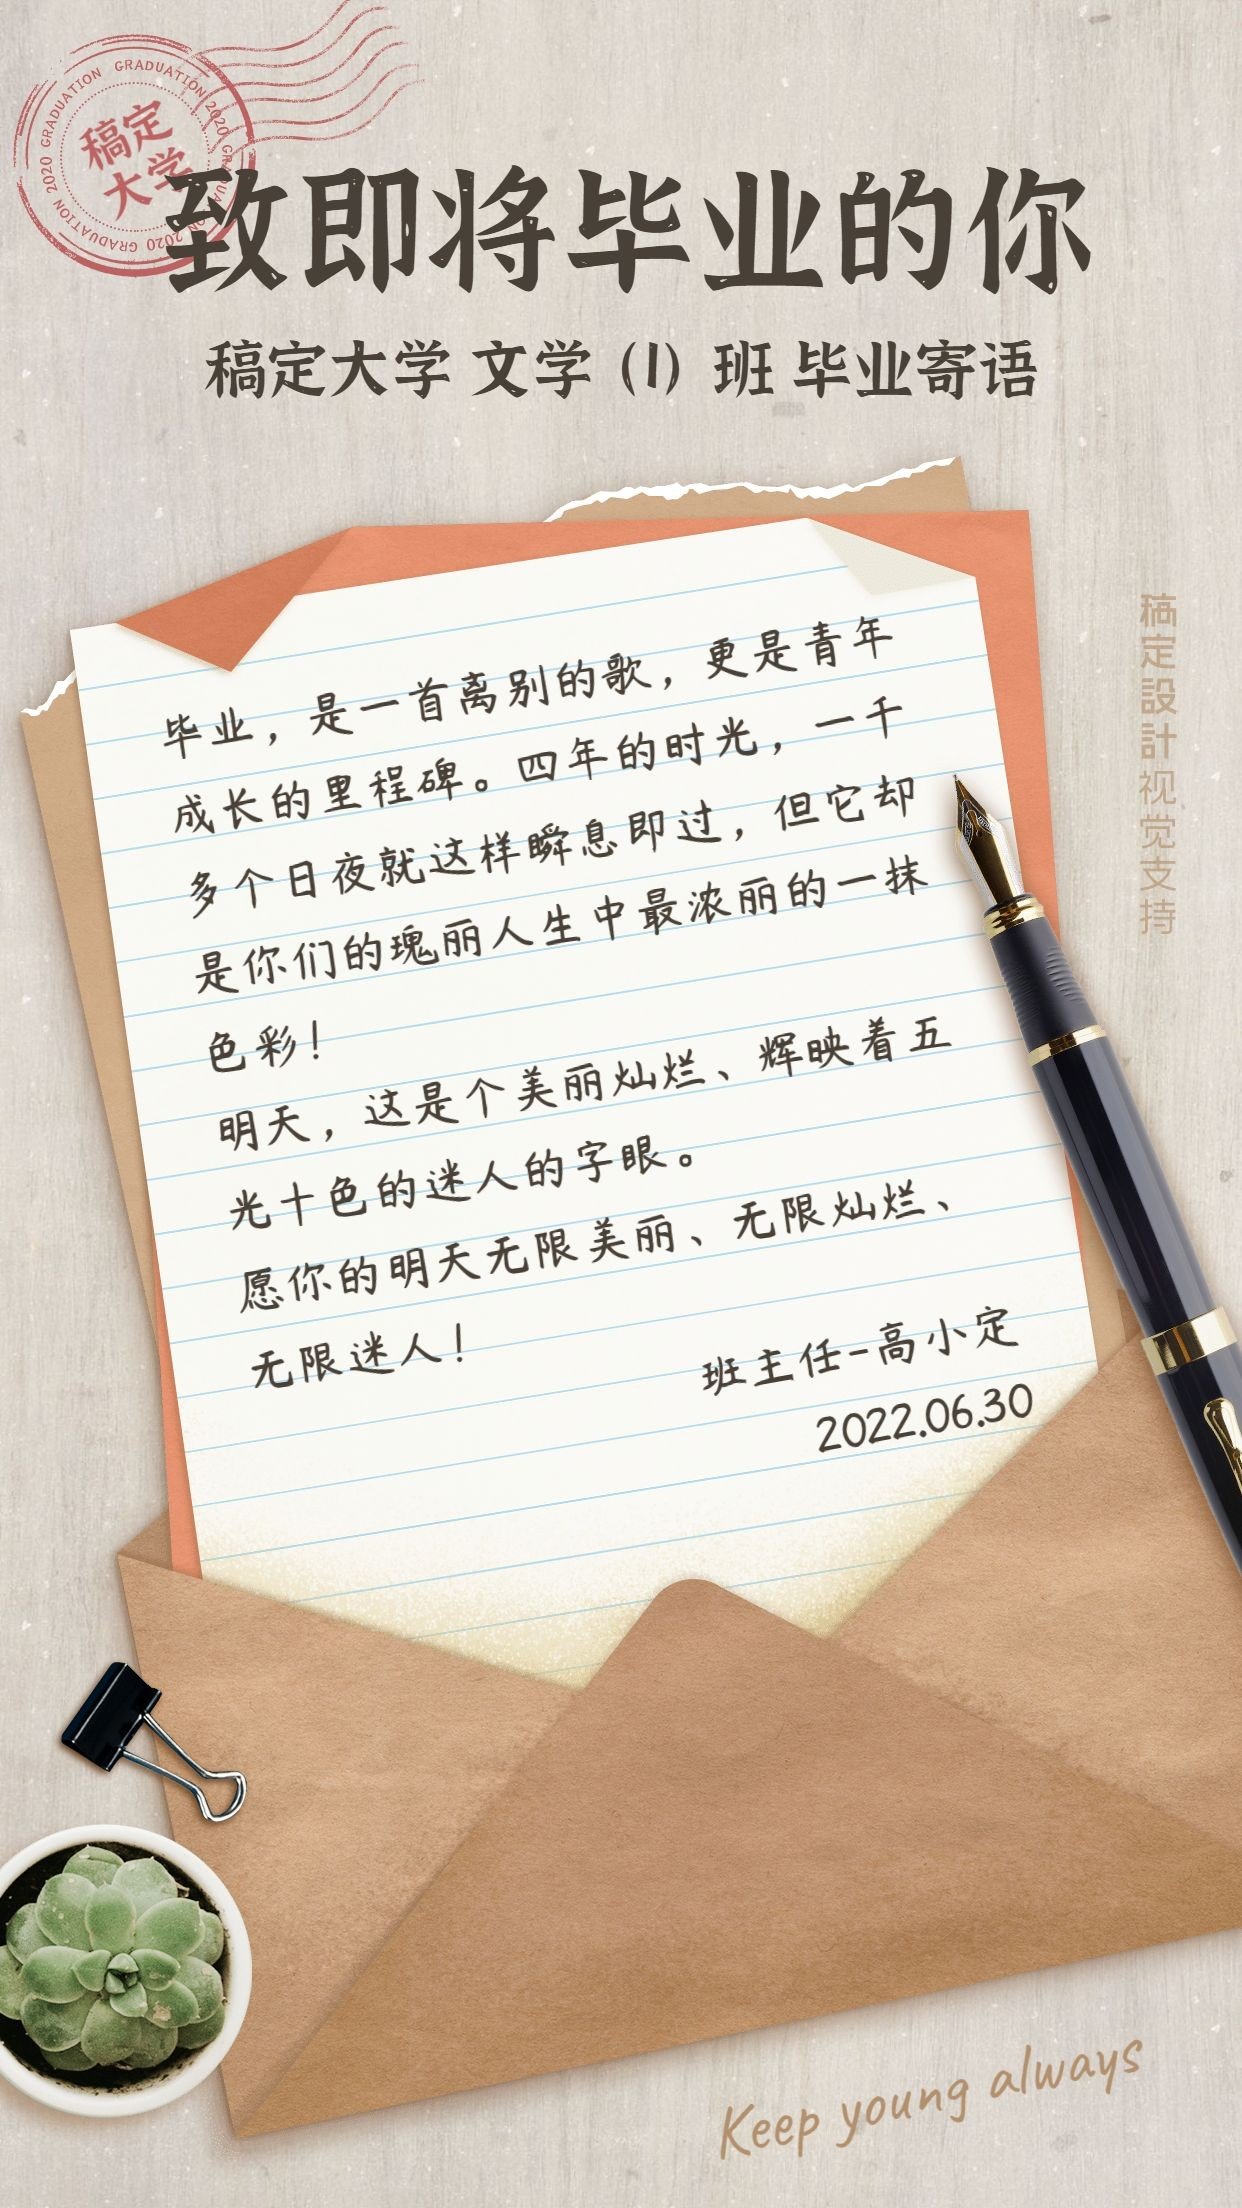 GRADUATION 2020 GRADUATION 2020 GRADUATION 2020 GRADUATION 2020
稿定
大学
致即将毕业的你
稿定大学 文学（1）班 毕业寄语
毕业，是一首离别的歌，更是青年
成长的里程碑。四年的时光，一千
多个日夜就这样瞬息即过，但它却
是你们的瑰丽人生中最浓丽的一抹
色彩！
明天，这是个美丽灿烂、辉映着五
光十色的迷人的字眼。
愿你的明天无限美丽、无限灿烂、
无限迷人！
班主任-高小定
2022.06.30
稿定設計视觉支持
Keep young always